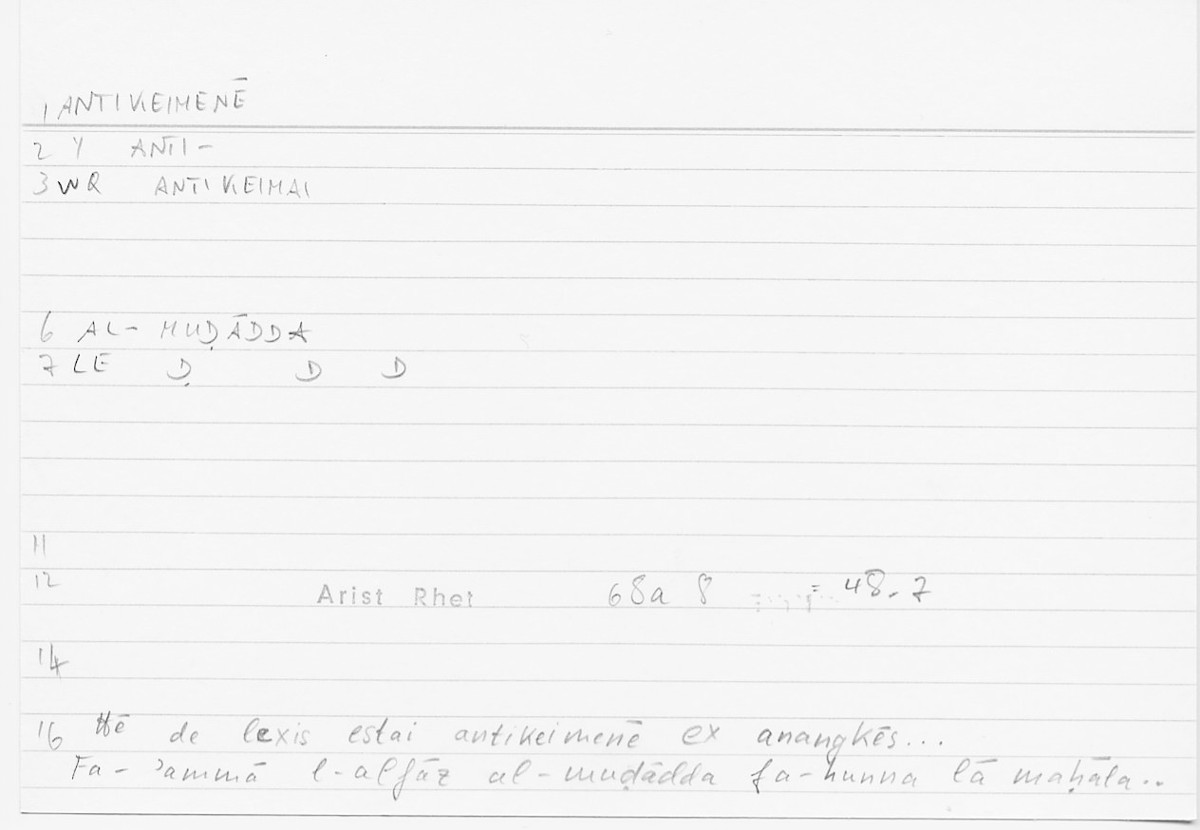 1 ANTIKEIMENĒ
2 Y ANTI-
3 WR ANTIKEIMAI
6 AL- MUḌĀDDA
7 LE Ḍ D D
11
12 Arist Rhet 68a 8 = 48.7
14
16 Hē de lexis estai antikeimenē ex anangkēs...
Fa- ʾammā l-alfāẓ al-muḍādda fa-hunna lā maḥāla..